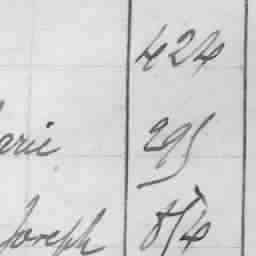 424
arie 295
Joseph 854